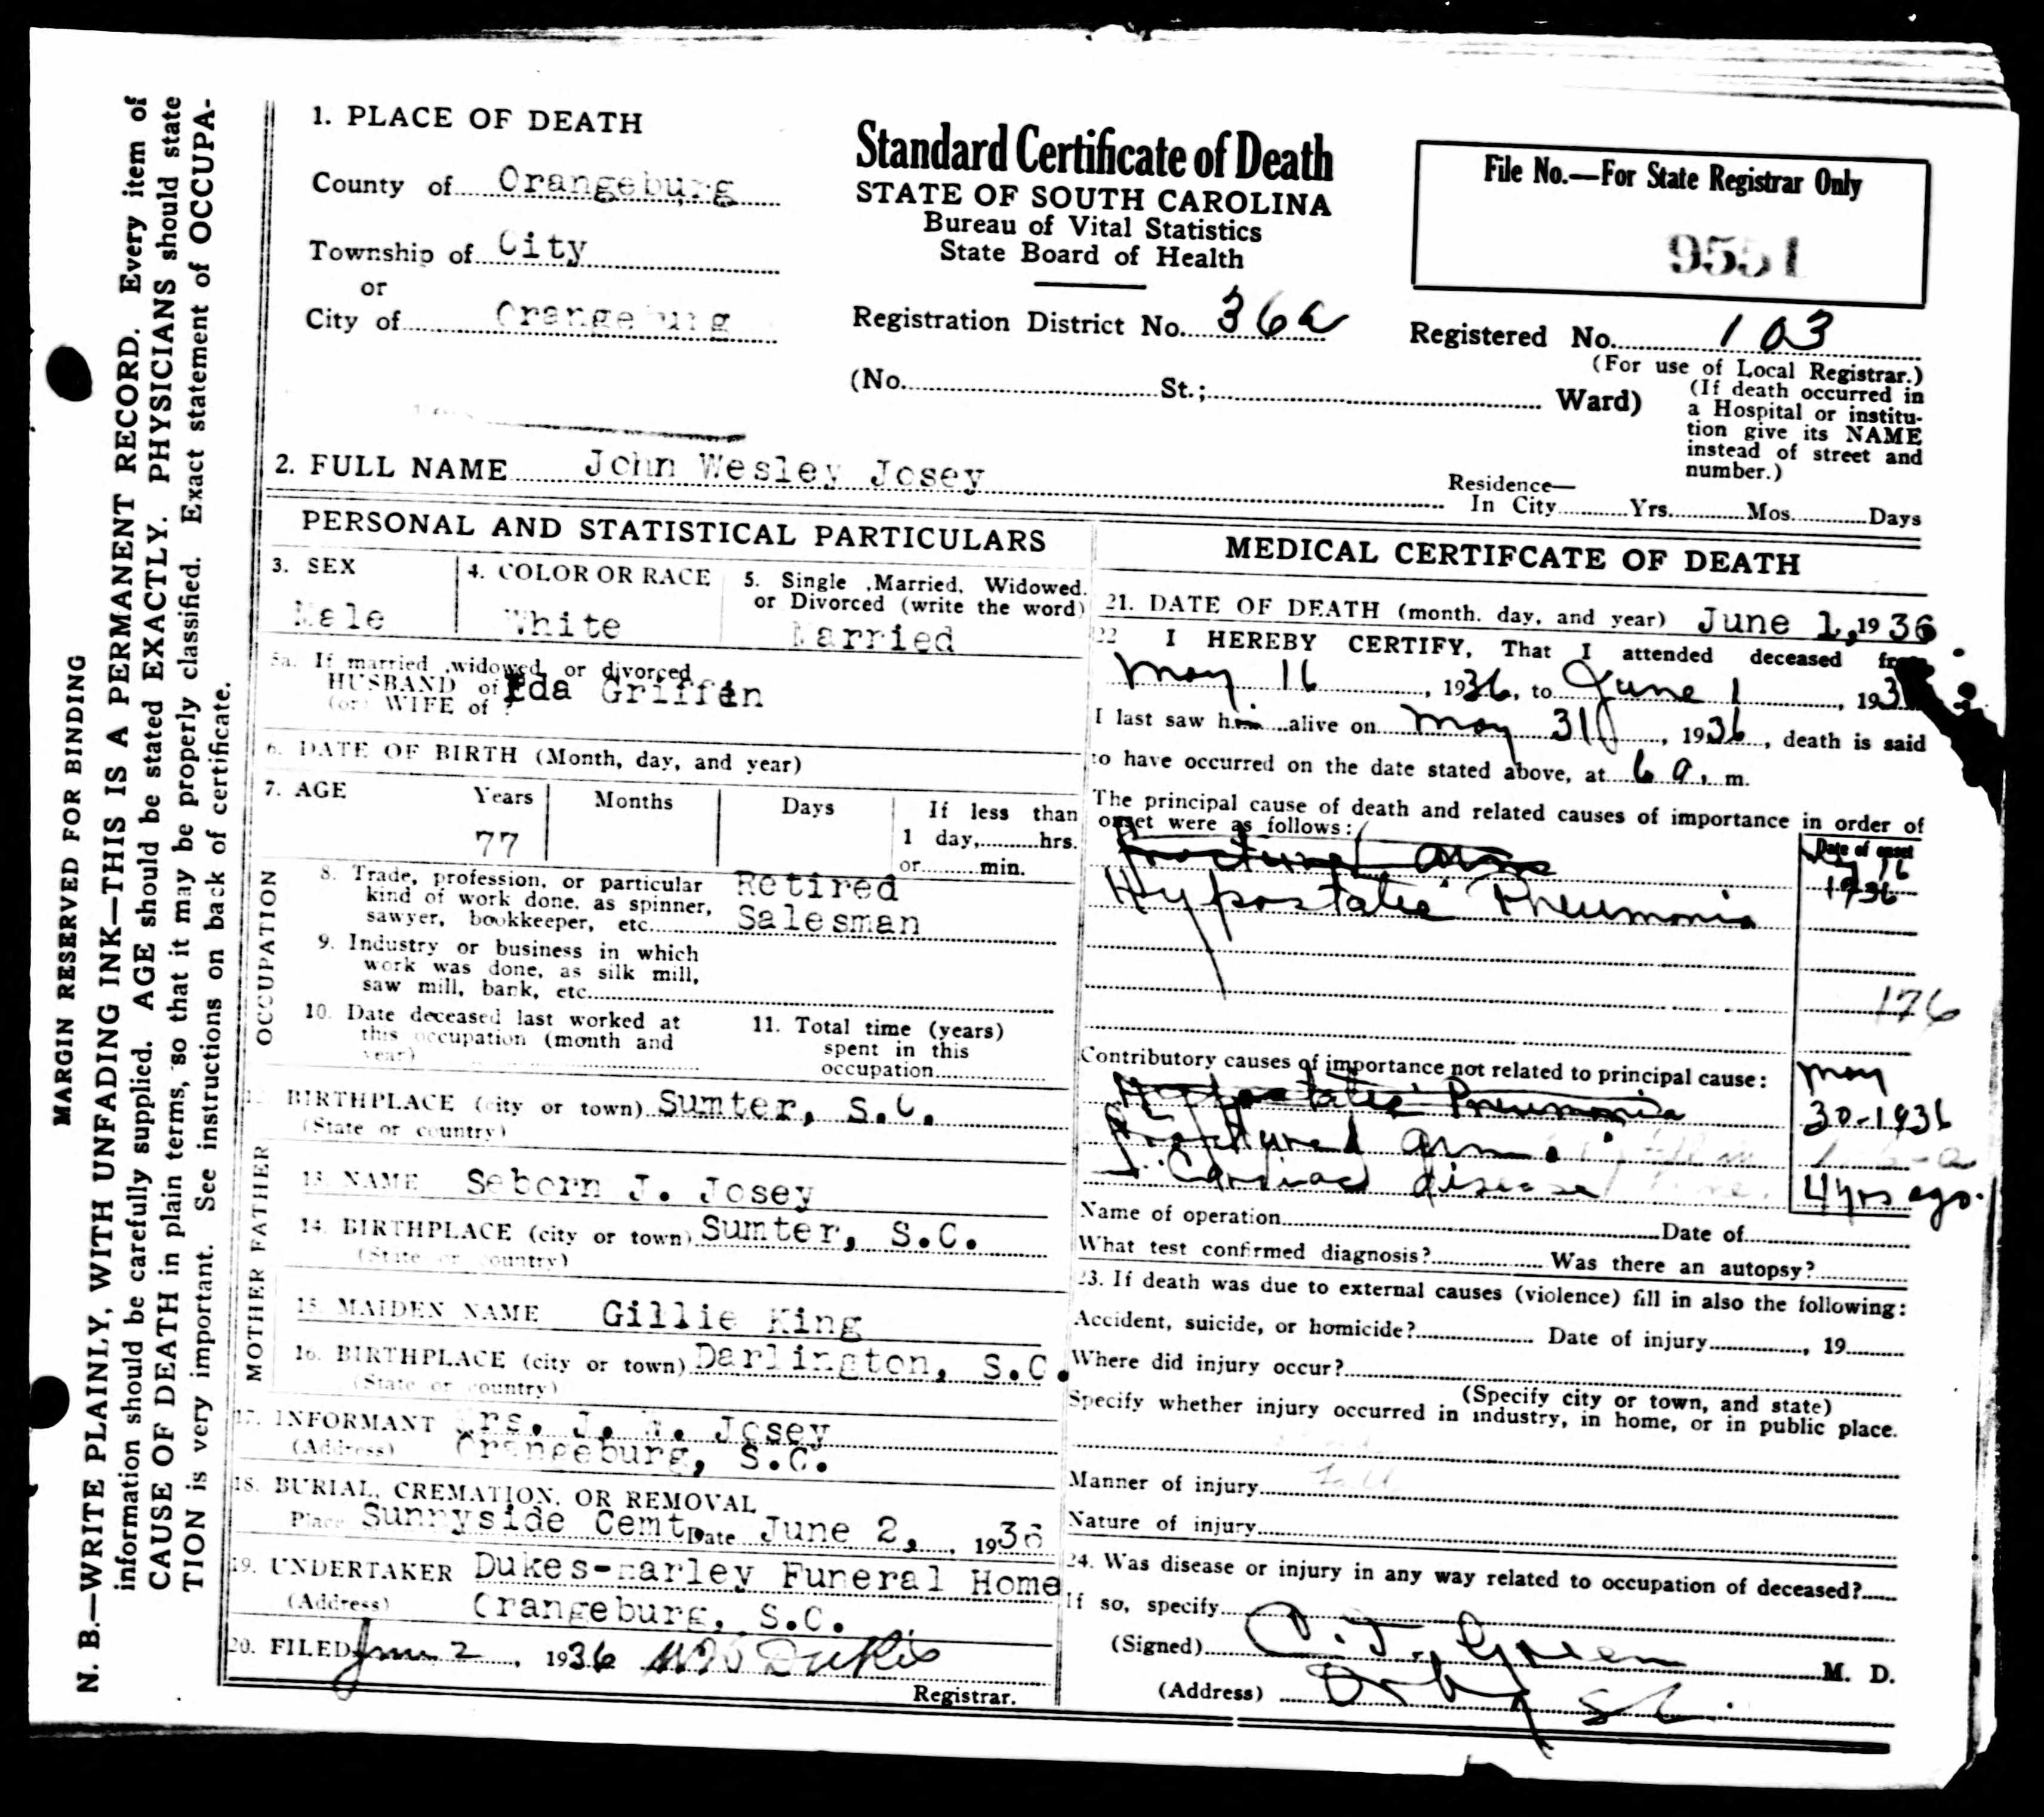 MARGIN RESERVED FOR BINDING
N. B.—WRITE PLAINLY, WITH UNFADING INK—THIS IS A PERMANENT RECORD. Every item of
information should be carefully supplied. AGE should be stated EXACTLY. PHYSICIANS should state
CAUSE OF DEATH in plain terms, so that it may be properly classified. Exact statement of OCCUPA-
TION is very important. See instructions on back of certificate.
1. PLACE OF DEATH
County of Orangeburg
Township of City
or
City of Orangeburg
Standard Certificate of Death
STATE OF SOUTH CAROLINA
Bureau of Vital Statistics
State Board of Health
Registration District No. 36a
(No. St.; Ward)
File No.—For State Registrar Only
9551
Registered No. 103
(For use of Local Registrar.)
(If death occurred in
a Hospital or institu-
tion give its NAME
instead of street and
number.)
2. FULL NAME John Wesley Josey
Residence—
In City Yrs. Mos. Days
PERSONAL AND STATISTICAL PARTICULARS
3. SEX
Male
4. COLOR OR RACE
White
5. Single ,Married, Widowed.
or Divorced (write the word)
Married
5a. If married ,widowed, or divorced
HUSBAND of
(or) WIFE of
Eda Griffin
6. DATE OF BIRTH (Month, day, and year)
7. AGE Years Months Days If less than
77 1 day, hrs.
or min.
OCCUPATION
8. Trade, profession, or particular
kind of work done, as spinner,
sawyer, bookkeeper, etc.
Retired
Salesman
9. Industry or business in which
work was done, as silk mill,
saw mill, bank, etc.
10. Date deceased last worked at
this occupation (month and
year)
11. Total time (years)
spent in this
occupation
12. BIRTHPLACE (city or town) Sumter, S.C.
(State or country)
FATHER
13. NAME Seborn J. Josey
14. BIRTHPLACE (city or town) Sumter, S.C.
(State or country)
MOTHER
15. MAIDEN NAME Gillie King
16. BIRTHPLACE (city or town) Darlington, S.C.
(State or country)
17. INFORMANT Mrs. J. W. Josey
(Address) Orangeburg, S.C.
18. BURIAL, CREMATION, OR REMOVAL
Place Sunnyside Cemt Date June 2, 1936
19. UNDERTAKER Dukes-Harley Funeral Home
(Address) Orangeburg, S.C.
20. FILED June 2, 1936 Dukes
Registrar.
MEDICAL CERTIFCATE OF DEATH
21. DATE OF DEATH (month. day, and year) June 1, 1936
22 I HEREBY CERTIFY, That I attended deceased
May 16, 1936, to June 1, 193
I last saw him alive on May 31, 1936, death is said
to have occurred on the date stated above, at 6 a. m.
The principal cause of death and related causes of importance in order of
onset were as follows:
Date of onset
Fractured arm
16
1936
Hypostatic Pneumonia
176
Contributory causes of importance not related to principal cause:
Hypostatic Pneumonia
May
30-1936
Fractured arm
Cardiac disease 4 yrs ago.
Name of operation Date of
What test confirmed diagnosis? Was there an autopsy?
23. If death was due to external causes (violence) fill in also the following:
Accident, suicide, or homicide? Date of injury , 19
Where did injury occur?
(Specify city or town, and state)
Specify whether injury occurred in industry, in home, or in public place.
Manner of injury Fall
Nature of injury
24. Was disease or injury in any way related to occupation of deceased?
If so, specify
(Signed) C. J. Green M. D.
(Address) Orbg SC.